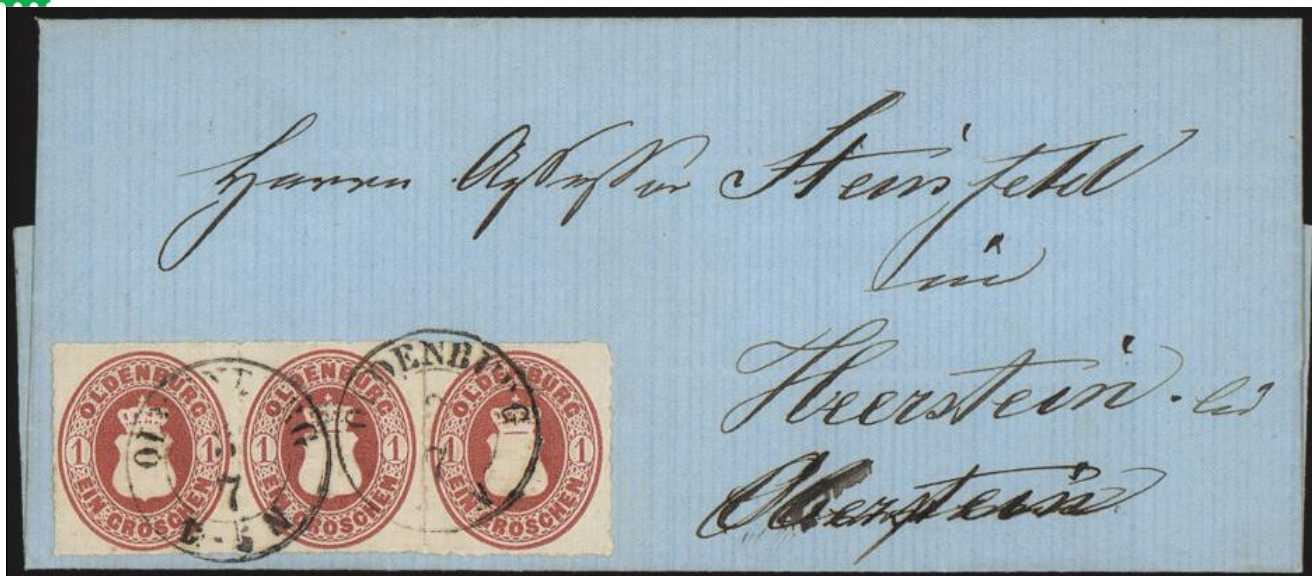 Herrn Assessor Steinfeld
in
Herrstein. bei
Oberstein
OLDENBURG
1 1
EIN GROSCHEN
OLDENBURG
1 1
EIN GROSCHEN
OLDENBURG
1 1
EIN GROSCHEN
OLDENBURG
7
OLDENBURG